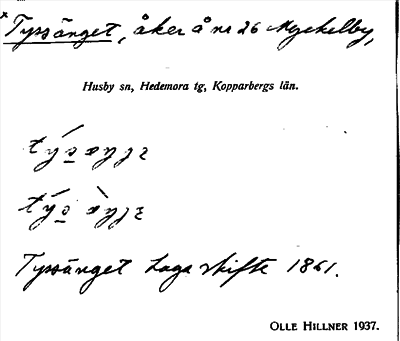 *Tyssänget, åker å nr 26 Myckelby,
Husby sn, Hedemora tg, Kopparbergs län.
Tyssänget Laga skifte 1861.
OLLE HILLNER 1937.